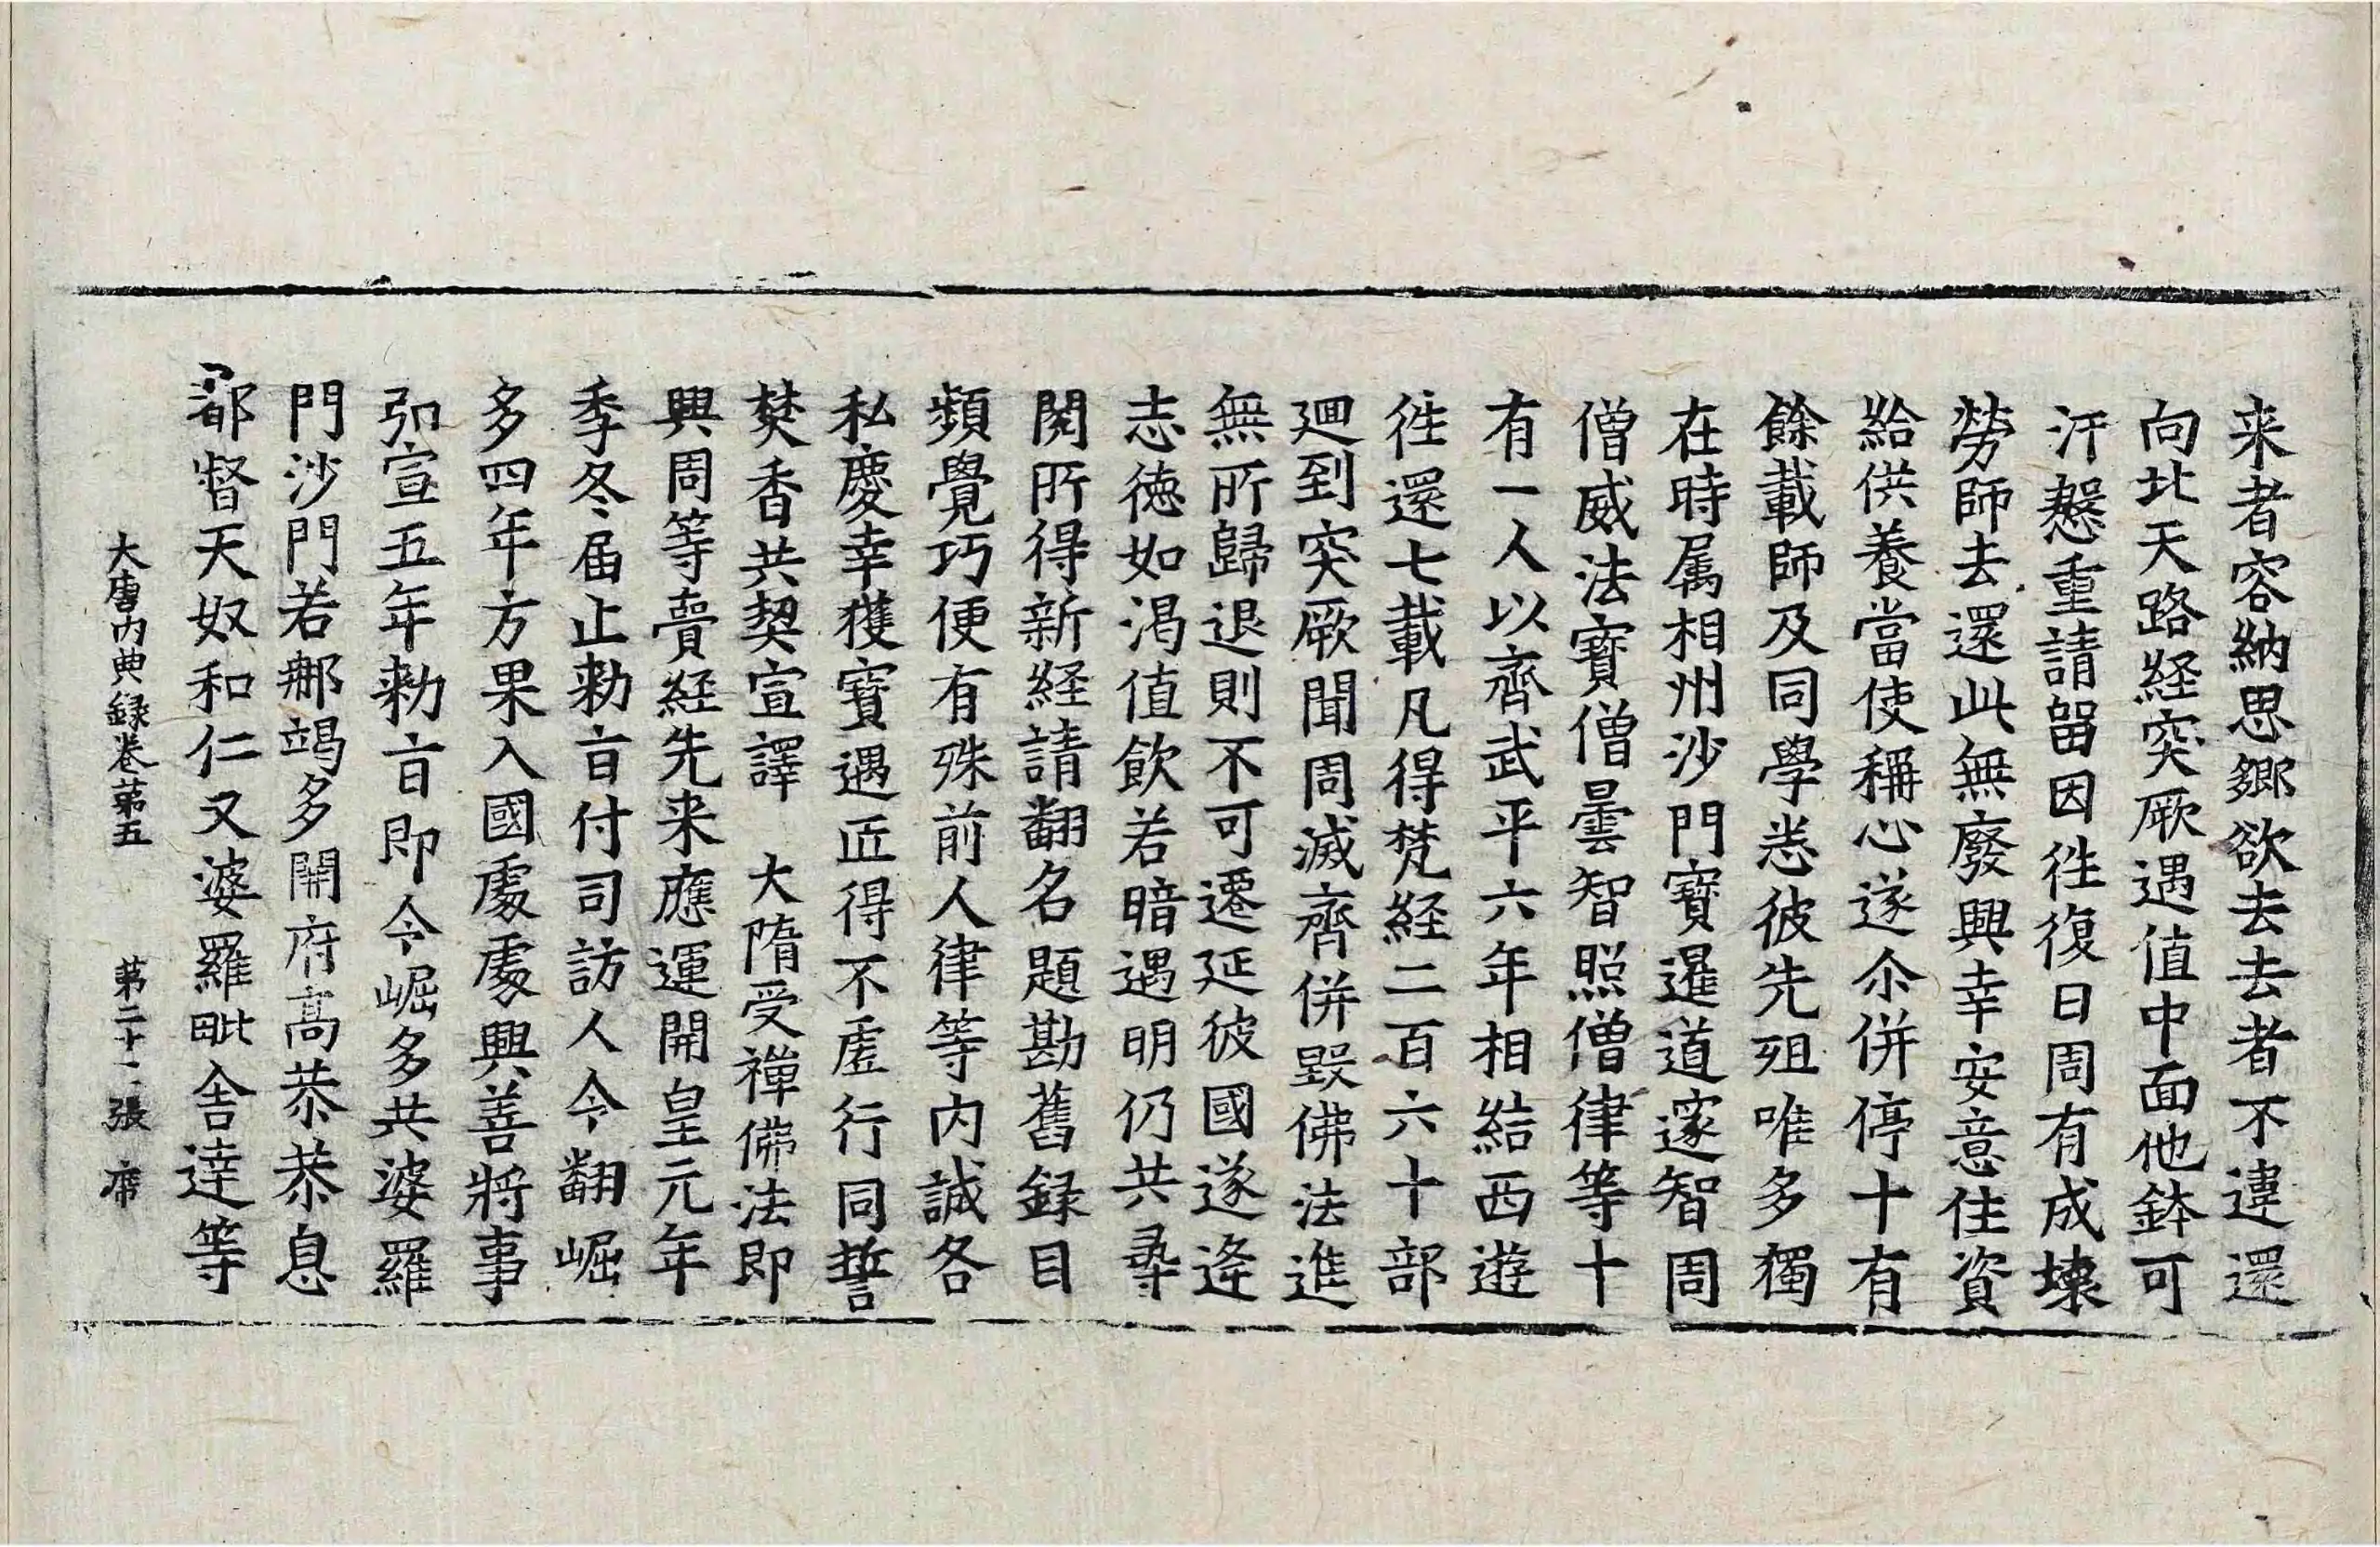 来者容納思鄉欲去去者不違還
向北天路經突厥遇值中面他鉢可
汗慇重請留因徃復日周有成壞
勞師去還此無廢興幸安意住資
給供養當使稱心遂尒併停十有
餘載師及同學悉彼先殂唯多獨
在時属相州沙門寶暹道邃智周
僧威法寶僧曇智照僧律等十
有一人以齊武平六年相結西遊
徃還七載凡得梵経二百六十部
廻到突厥聞周滅齊併毀佛法進
無所歸退則不可遷延彼國遂逢
志德如渴值飲若暗遇明仍共尋
閱所得新経請翻名題勘舊録目
頻覺巧便有殊前人律等内誠各
私慶幸獲寶遇匠得不虛行同誓
焚香共契宣譯　大隋受禪佛法即
興周等賷経先来應運開皇元年
季冬届止勑旨付司訪人令翻崛
多四年方果入國處處興善將事
弘宣五年勑旨即令崛多共婆羅
門沙門若那竭多開府高恭恭息
都督天奴和仁又婆羅毗舍達等
大唐内典録卷苐五　苐二十二張　席